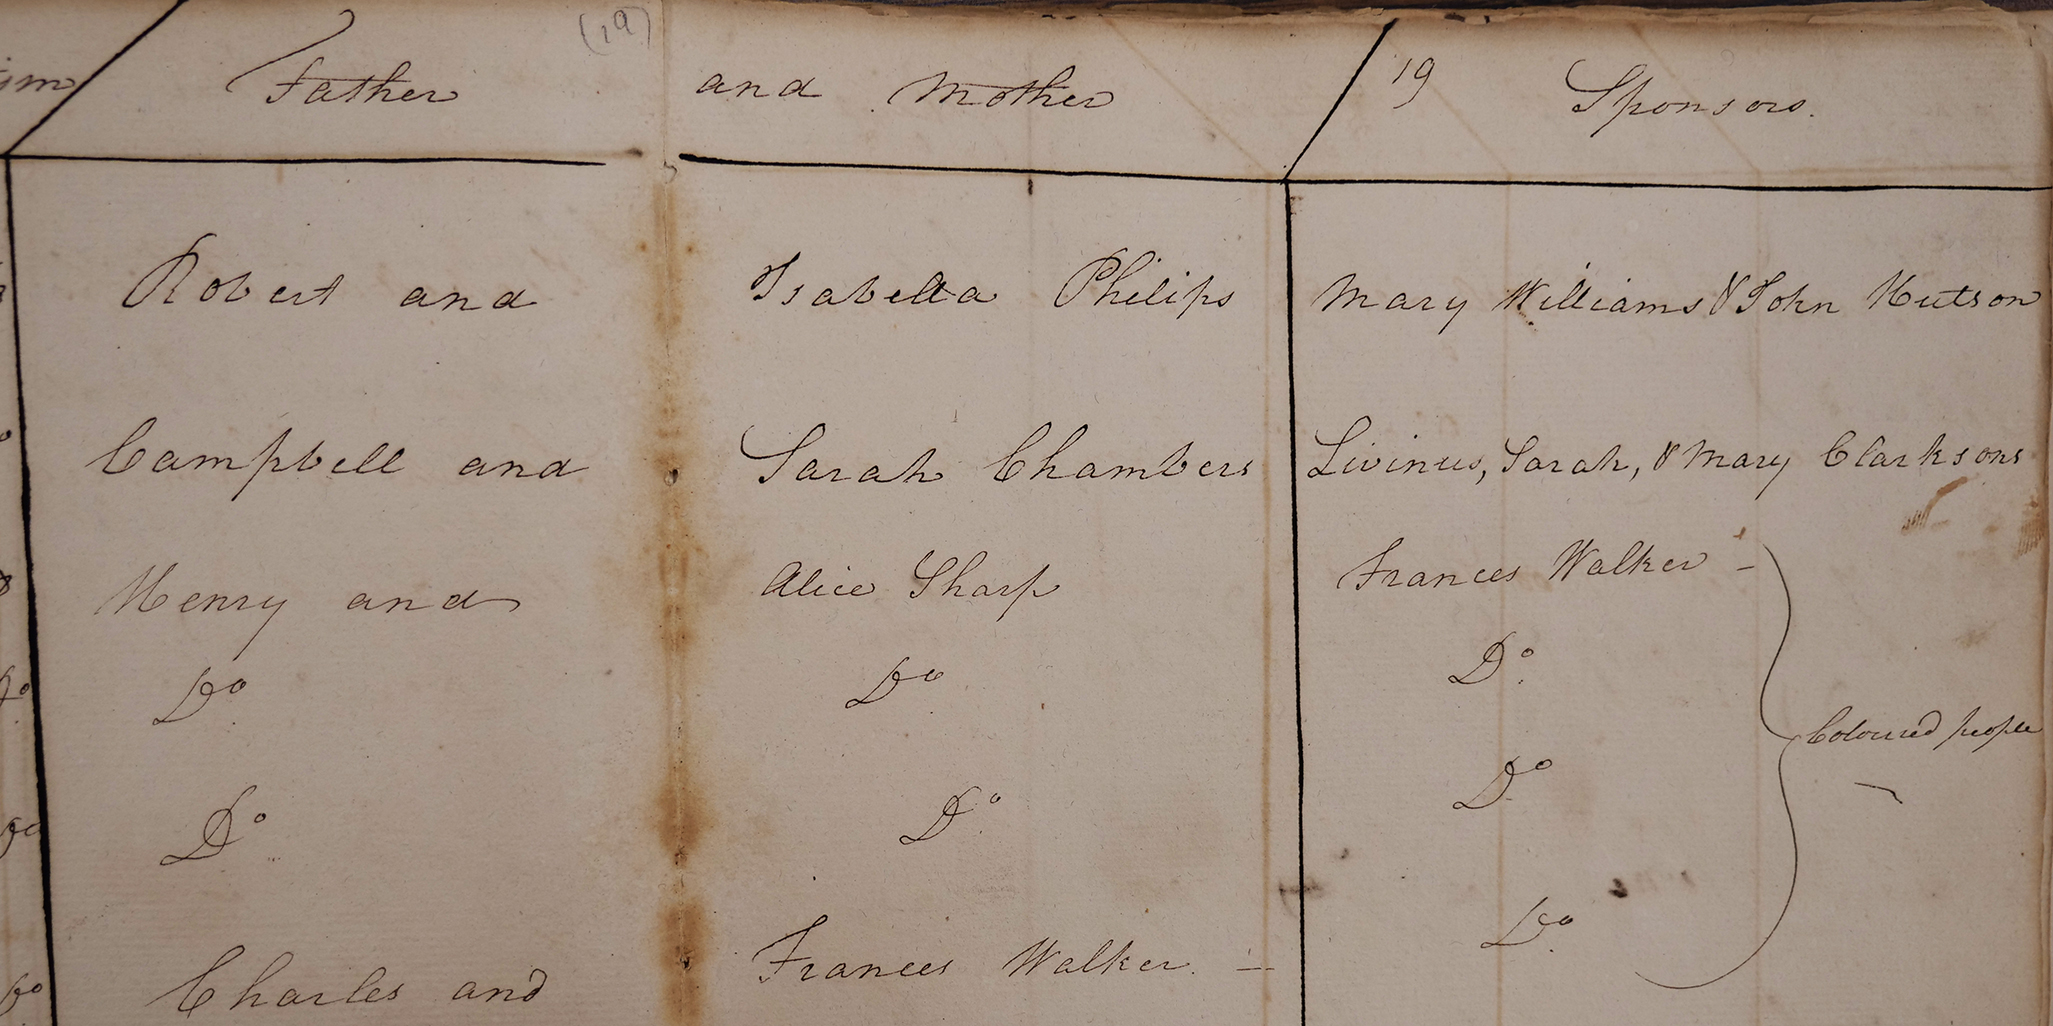 (19)
Father and Mother 19 Sponsors.
Robert and Isabella Philips Mary Williams & John Hutson
Campbell and Sarah Chambers Livinus, Sarah, & Mary Clarksons
Henry and Alice Sharp Frances Walker -
Do Do Do
Do Do Do
Coloured people
Charles and Frances Walker. - Do